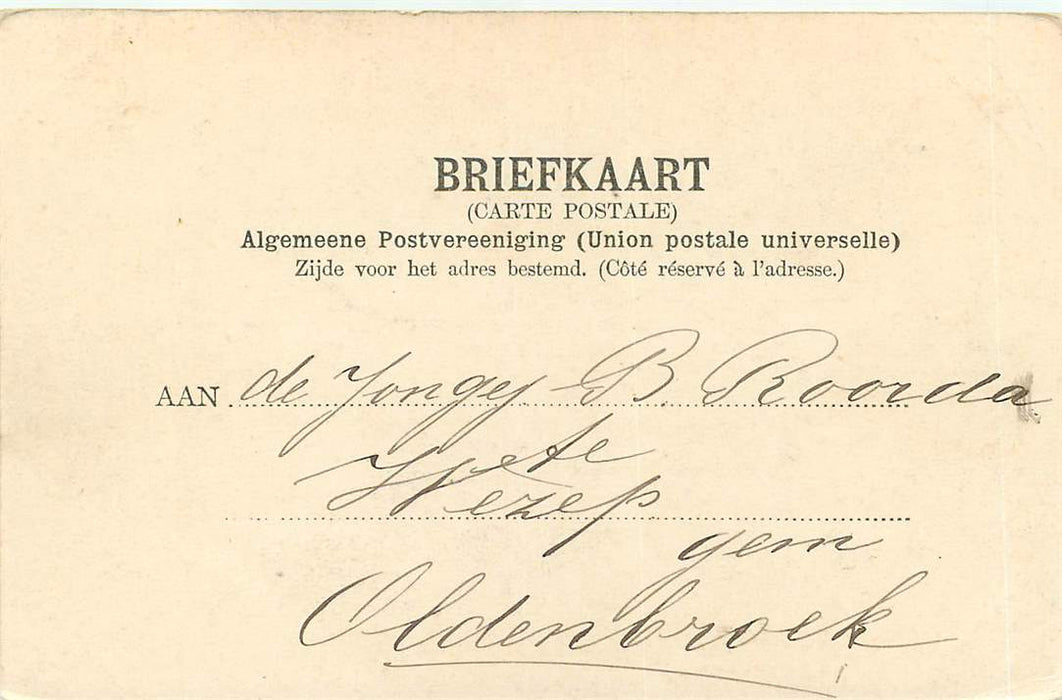 BRIEFKAART
(CARTE POSTALE)
Algemeene Postvereeniging (Union postale universelle)
Zijde voor het adres bestemd. (Côté réservé à l'adresse.)
AAN de B. Roorda
te
Wezep
gem
Oldenbroek